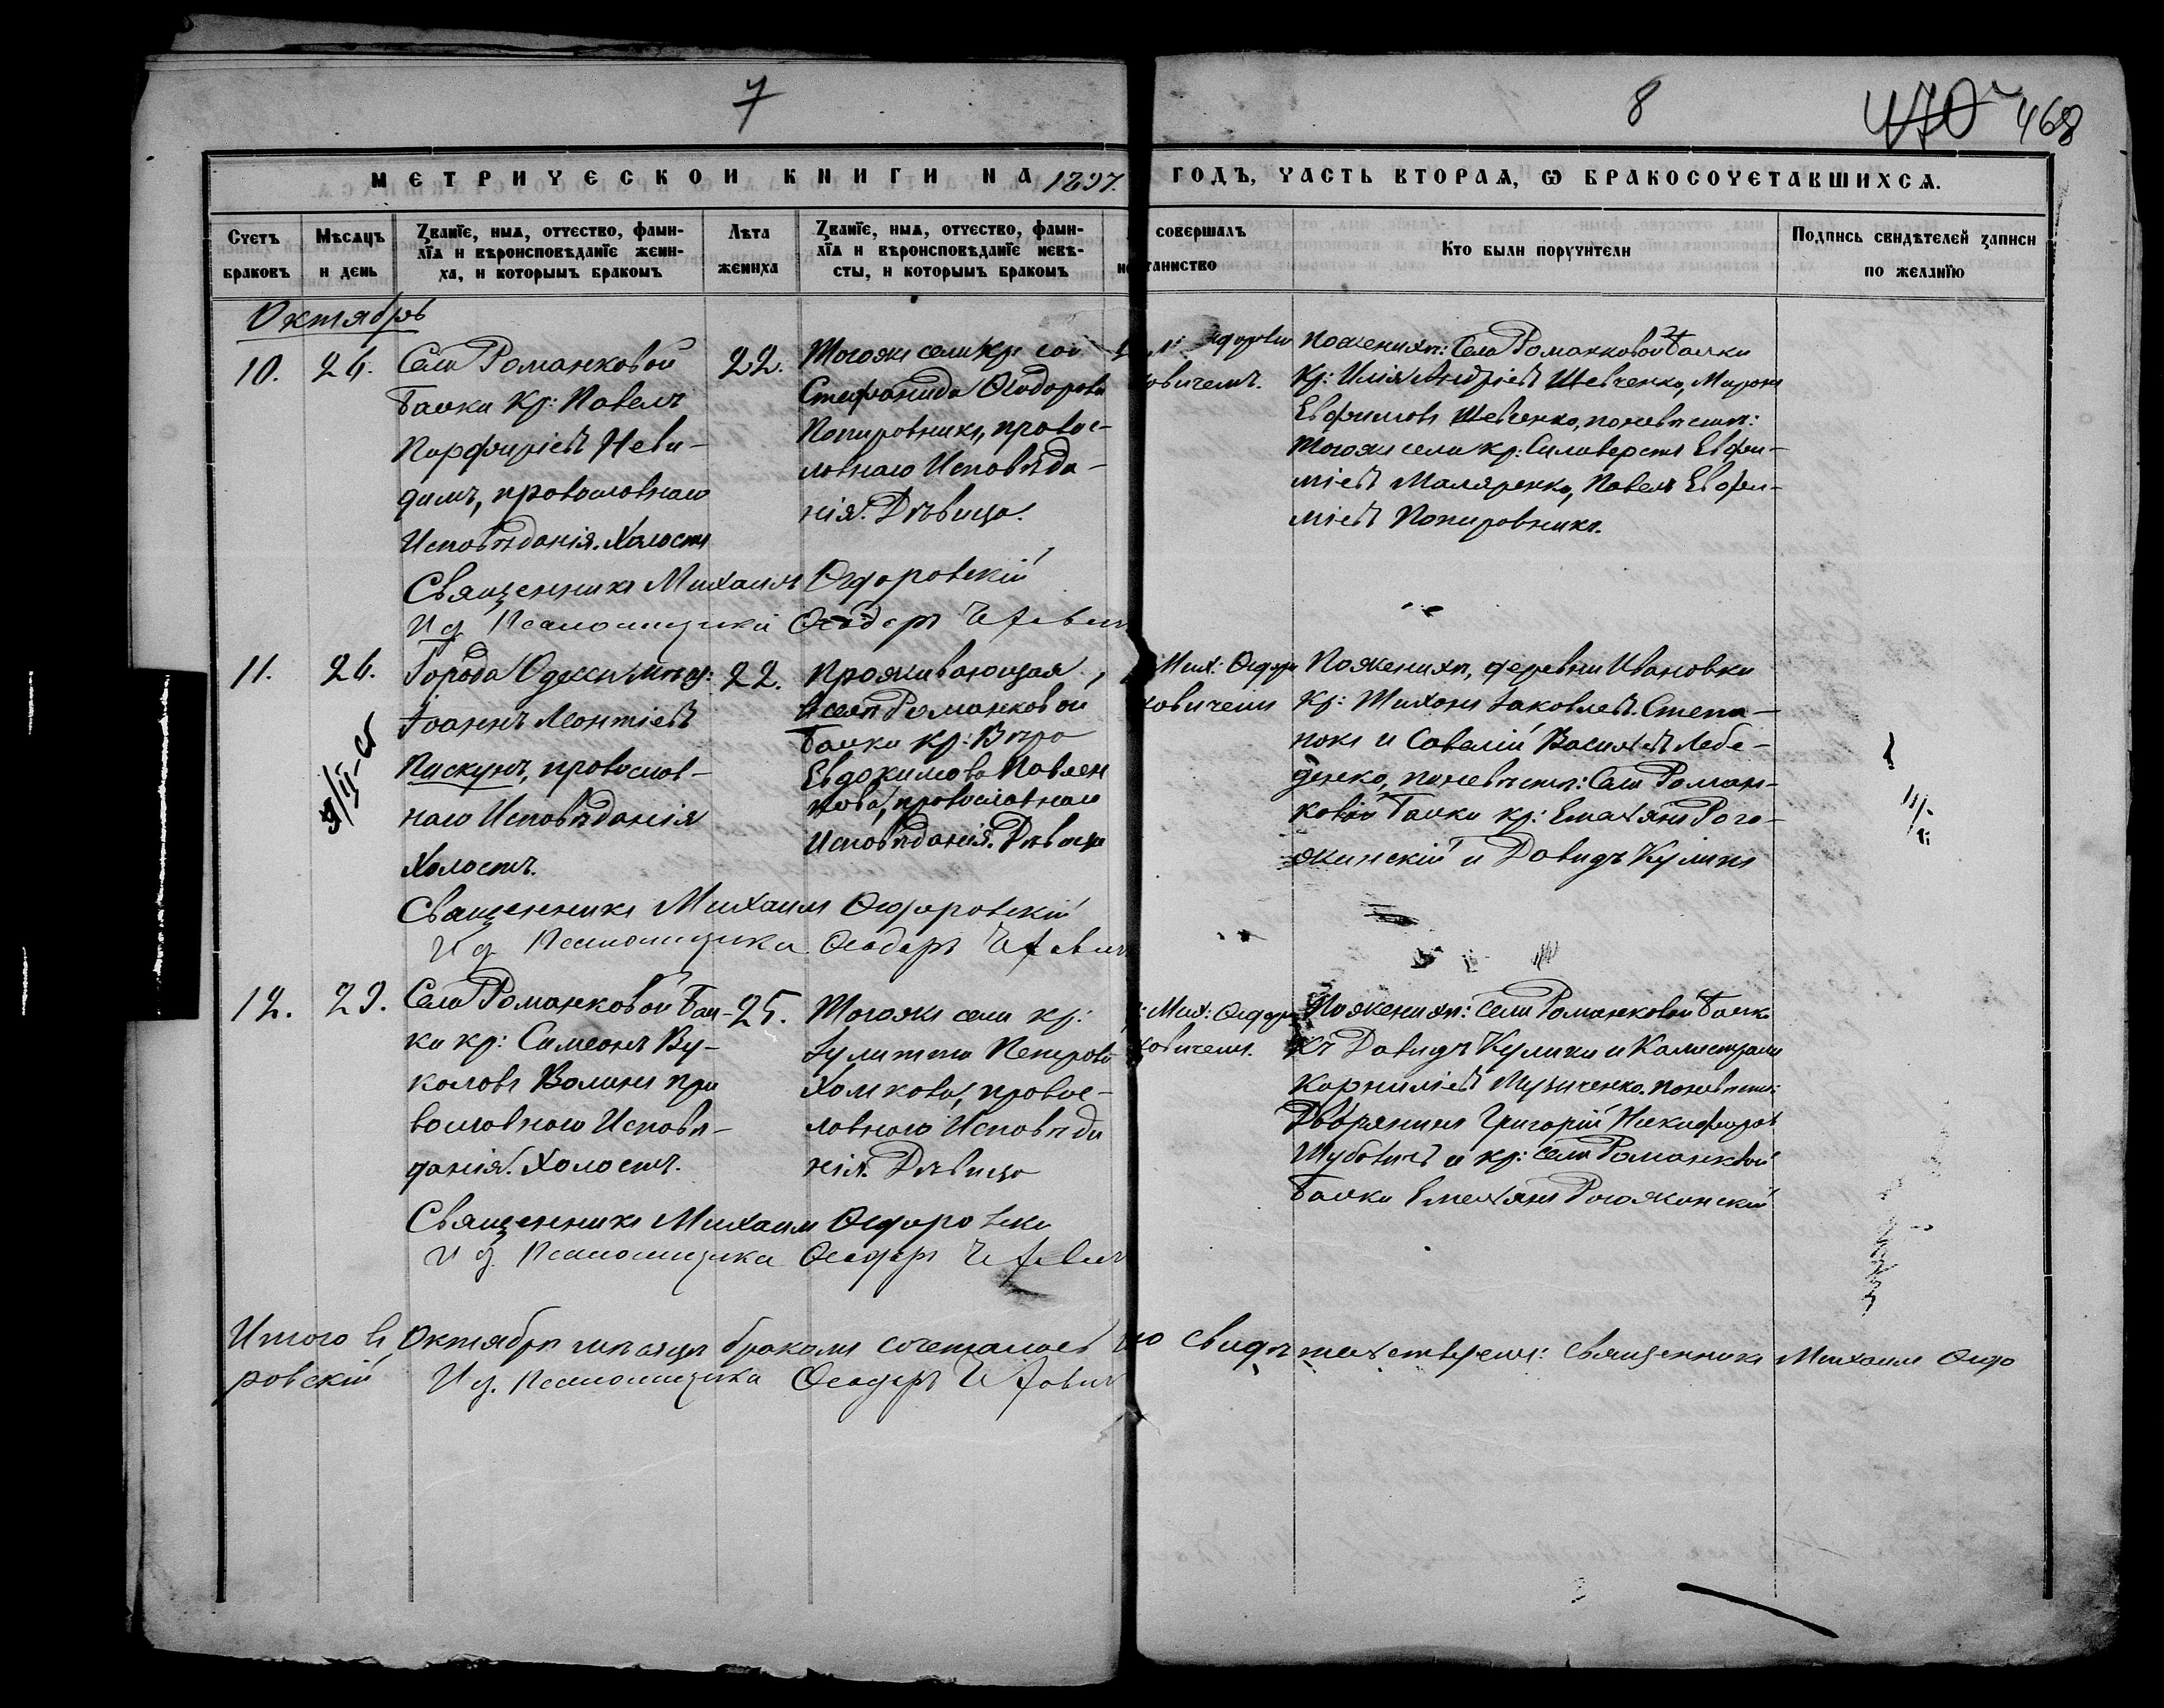 7
8
470
468
МЕТРИЧЕСКОЙ КНИГИ НА 1897. ГОДЪ, ЧАСТЬ ВТОРАѦ, Ѡ БРАКОСОЧЕТАВШИХСѦ.
Счетъ браковъ
Мѣсѧцъ и день
Званїе, имѧ, отчество, фами-
лїѧ и вѣроисповѣданїе жени-
ха, и которымъ бракомъ
Лѣта жениха
Званїе, имѧ, отчество, фами-
лїѧ и вѣроисповѣданїе невѣ-
сты, и которымъ бракомъ
совершалъ
таинство
Кто были поручители
Подпись свидѣтелей записи
по желанїю
Октябрь
10.
26.
Села Романковой
Балки Кр: Павелъ
Парфиріевъ Неви-
димъ, православнаго
Исповѣданія. Холостъ
22.
Тогоже села Кр:
Стефанида Ѳеодорова
Папировника, правос-
лавнаго Исповѣда-
нія. Дѣвица.
овичемъ.
По женихѣ: Села Романковой Балки
Кр: Илія Андріевъ Шевченко, Миронъ
Евфимовъ Шевченко, по невѣстѣ:
Тогоже села кр: Силиверстъ Евфи-
міевъ Маляренко, Павелъ Евфи-
міевъ Папировникъ.
Священникъ Михаилъ Ѳедоровскій
И д Псаломщика Ѳеодоръ
11.
26.
Города Одессы мѣщ:
Іоаннъ Леонтіевъ
Пискунъ, православ-
наго Исповѣданія
Холостъ.
22.
Проживающая
въ селѣ Романковой
Балки кр: Вѣра
Евдокимова Павлен
кова, православнаго
Исповѣданія. Дѣвица
Мих: Ѳедор
ковичемъ
По женихѣ, деревни Ивановки
Кр: Тихонъ Іаковлевъ Степа-
нокъ и Савелій Васильевъ Лебе-
денко, по невѣстѣ: Села Роман-
ковой Балки кр: Емельянъ Рого-
жинскій и Давидъ Куликъ
Священникъ Михаилъ Ѳедоровскій
И д Псаломщика Ѳеодоръ
12.
29.
Села Романковой Бал-
ки кр: Симеонъ Ву-
коловъ Волинъ пра
вославнаго Исповѣ-
данія. Холостъ.
25.
Тогоже села кр:
Іулитта Петрова
Хомкова, правос-
лавнаго Исповѣда
нія. Дѣвица
Мих: Ѳедор
ковичемъ.
По женихѣ: села Романковой Балки
Кр Давидъ Куликъ и Калистратъ
Корниліевъ Музиченко. по невѣстѣ:
Дворянинъ Григорій Никифоровъ
Шубовичъ и кр: села Романковой
Балки Емельянъ Рогожинскій
Священникъ Михаилъ Ѳедоровскій
И д. Псаломщика Ѳеодоръ
Итого въ Октябрѣ мѣсяцѣ бракомъ сочеталось
свидѣтельствуемъ: Священникъ Михаилъ Ѳедо
ровскій И д. Псаломщика Ѳеодоръ